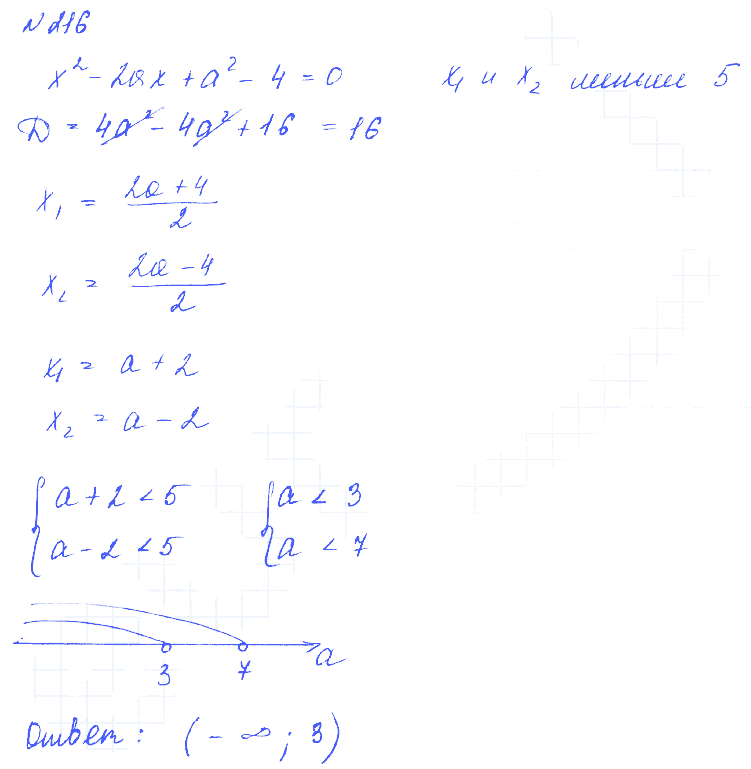 N 216
x² - 2ax + a² - 4 = 0 x₁ и x₂ меньше 5
D = 4a² - 4a² + 16 = 16
x₁ = (2a + 4)/2
x₂ = (2a - 4)/2
x₁ = a + 2
x₂ = a - 2
{ a + 2 < 5 { a < 3
{ a - 2 < 5 { a < 7
3 7 a
Ответ: (-∞; 3)